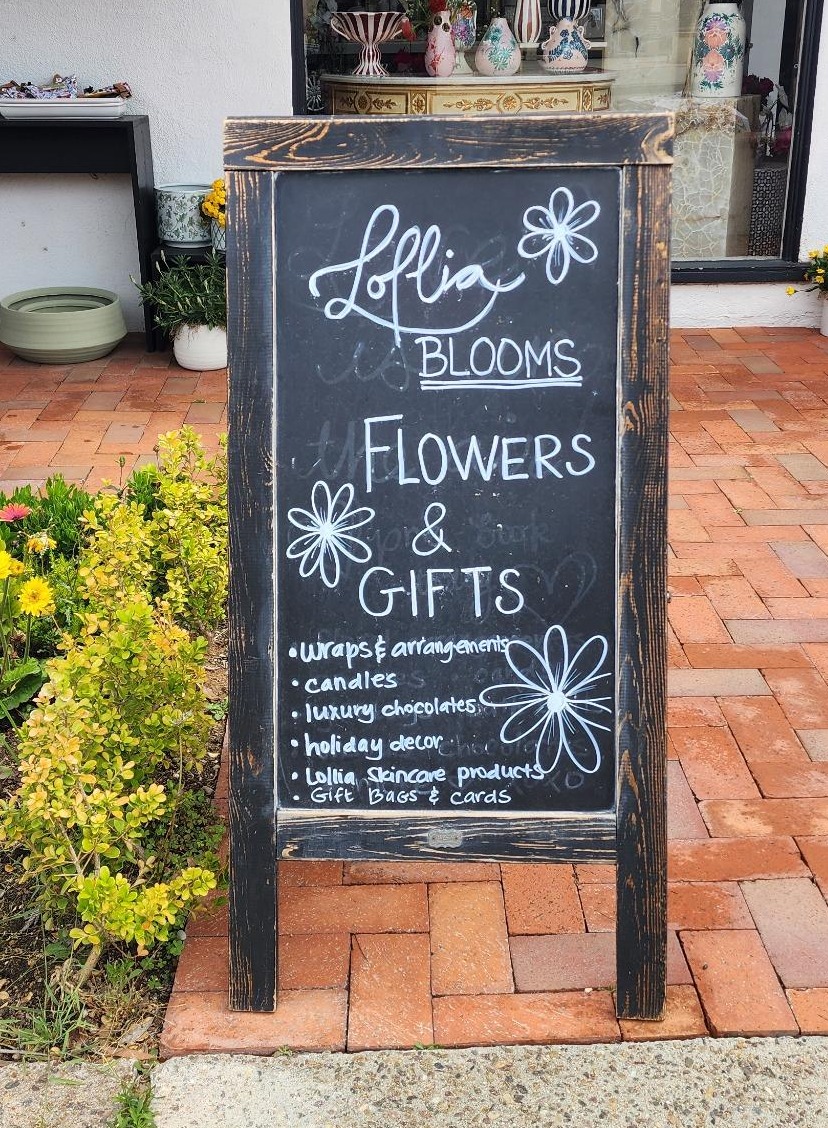 Lollia
BLOOMS
FLOWERS
&
GIFTS
• wraps & arrangements
• candles
• luxury chocolates
• holiday decor
• Lollia skincare products
• Gift Bags & cards